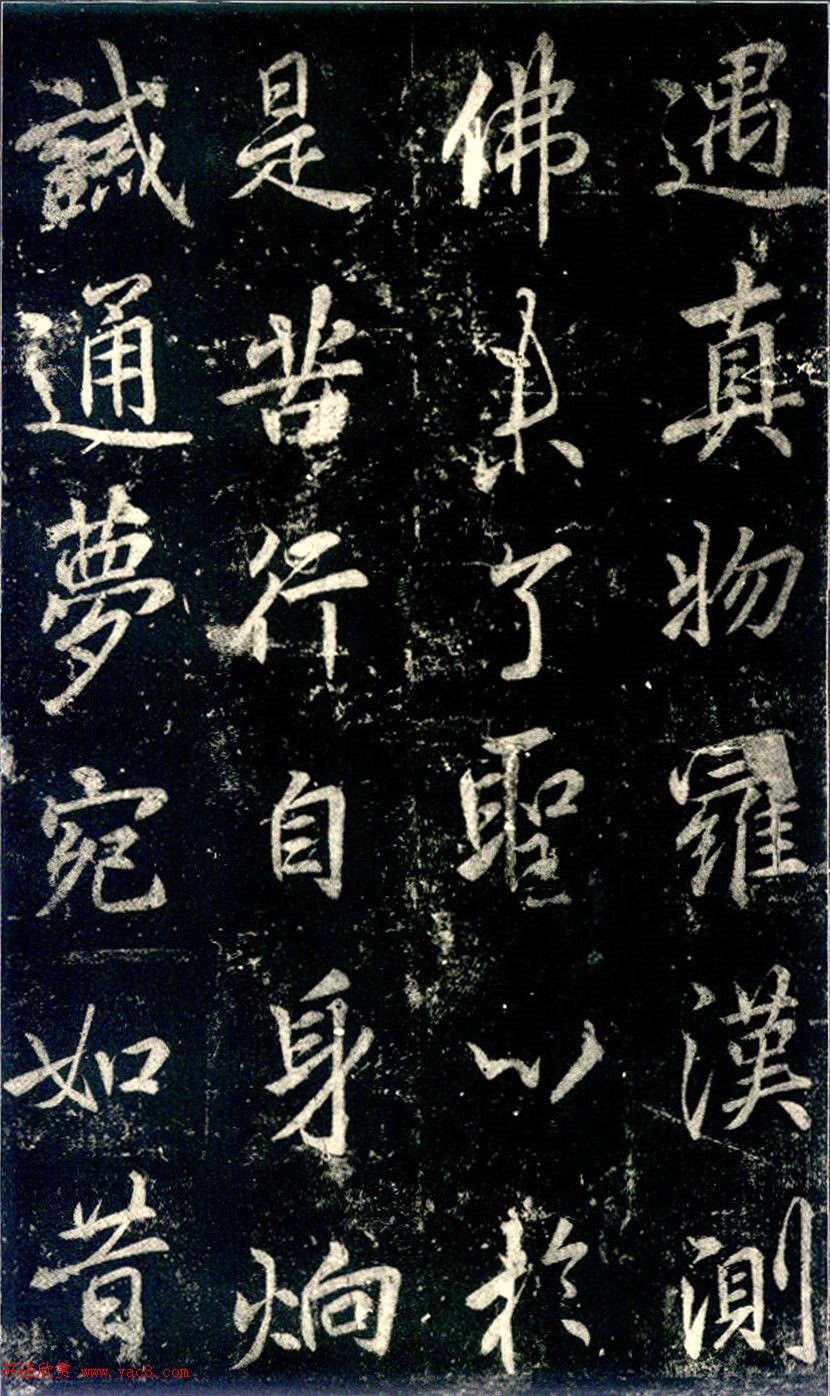 遇真物羅漢測
佛了聖以於
是苦行自身炯
誡通夢宛如昔
书法欣赏 www.yac8.com